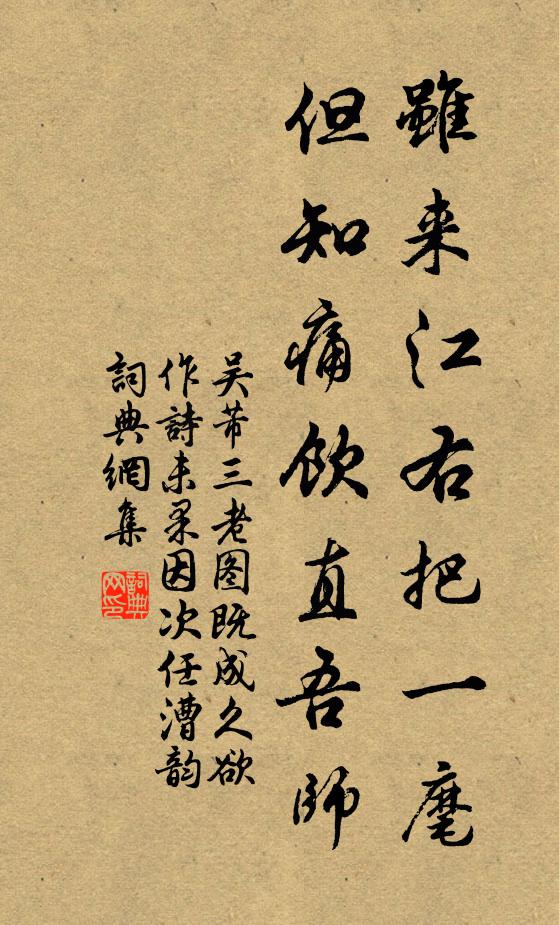 雖来江右把一麾
但知痛飲直吾師
吴芾三老图既成久欲
作詩未果因次任漕韵
詞典網集
詞典
网印